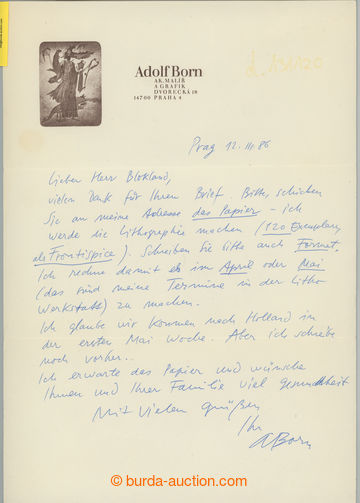 Adolf Born
AK. MALÍŘ
A GRAFIK
DVORECKÁ 28
147 00 PRAHA 4
Prag 12. III. 86
Lieber Herr Blokland,
vielen Dank für Ihren Brief. Bitte, schicken
Sie an meine Adresse das Papier – ich
werde die Lithographie machen (120 Exemplare
als Frontispice). Schreiben Sie bitte auch Format.
Ich rechne damit es im April oder Mai
(das sind meine Termine in der Litho-
Werkstatt) zu machen.
Ich glaube wir kommen nach Holland in
der ersten Mai Woche. Aber ich schreibe
noch vorher..
Ich erwarte das Papier und wünsche
Ihnen und Ihrer Familie viel gesundheit
Mit vielen grüßen
Ihr
ABorn
© burda-auction.com